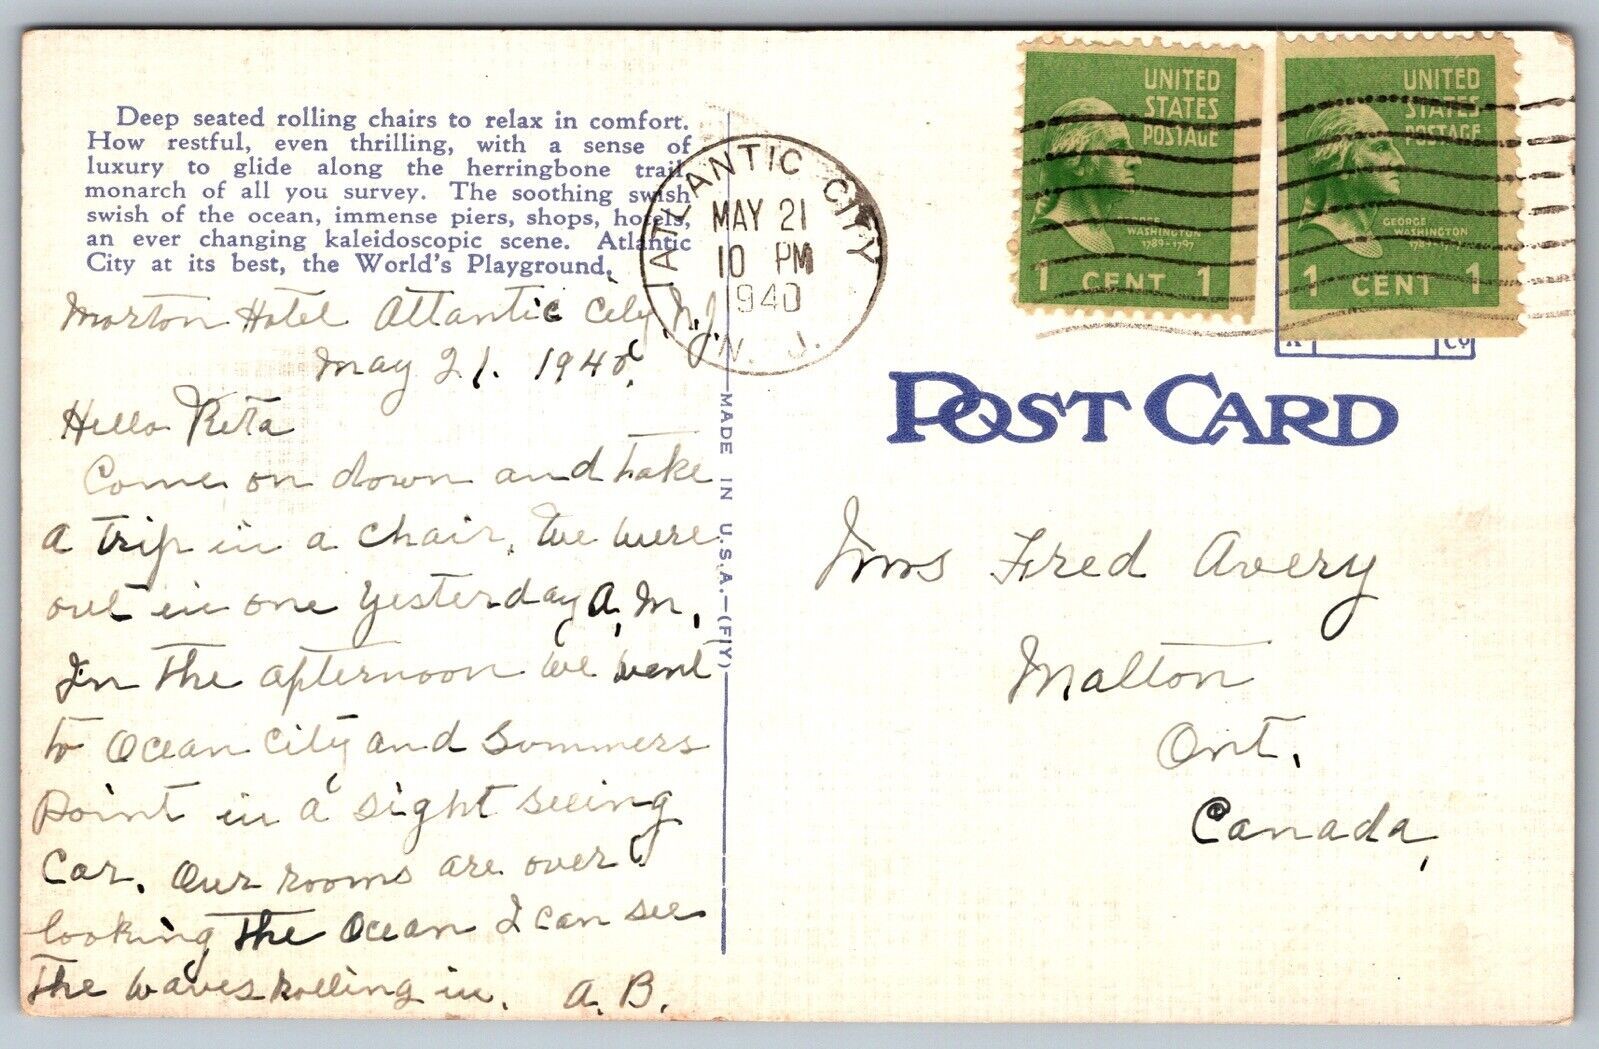 Deep seated rolling chairs to relax in comfort.
How restful, even thrilling, with a sense of
luxury to glide along the herringbone trail
monarch of all you survey. The soothing swish
swish of the ocean, immense piers, shops, hotels,
an ever changing kaleidoscopic scene. Atlantic
City at its best, the World's Playground.
Morton Hotel Attantic City N.J.
May 21. 1940
Hello Reta
Come on down and take
a trip in a chair. We were
out in one yesterday A.M.
In the afternoon we went
to Ocean City and Sommers
Point in a sight seeing
Car. Our rooms are over
looking the Ocean I can see
the waves rolling in. A.B.
MADE IN U.S.A.-(FIY)
ATLANTIC CITY
MAY 21
10 PM
1940
N. J.
UNITED
STATES
POSTAGE
GEORGE
WASHINGTON
1789-1797
1 CENT 1
UNITED
STATES
POSTAGE
GEORGE
WASHINGTON
1 CENT 1
POST CARD
Mrs Fred Avery
Malton
Ont.
Canada,